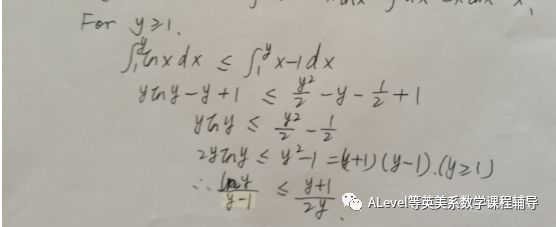 For y≥1.
∫₁^y ln x dx ≤ ∫₁^y x-1 dx
y ln y - y + 1 ≤ y²/2 - y - 1/2 + 1
y ln y ≤ y²/2 - 1/2
2y ln y ≤ y²-1 = (y+1)(y-1). (y≥1)
∴ ln y/y-1 ≤ y+1/2y.
ALevel等英美系数学课程辅导